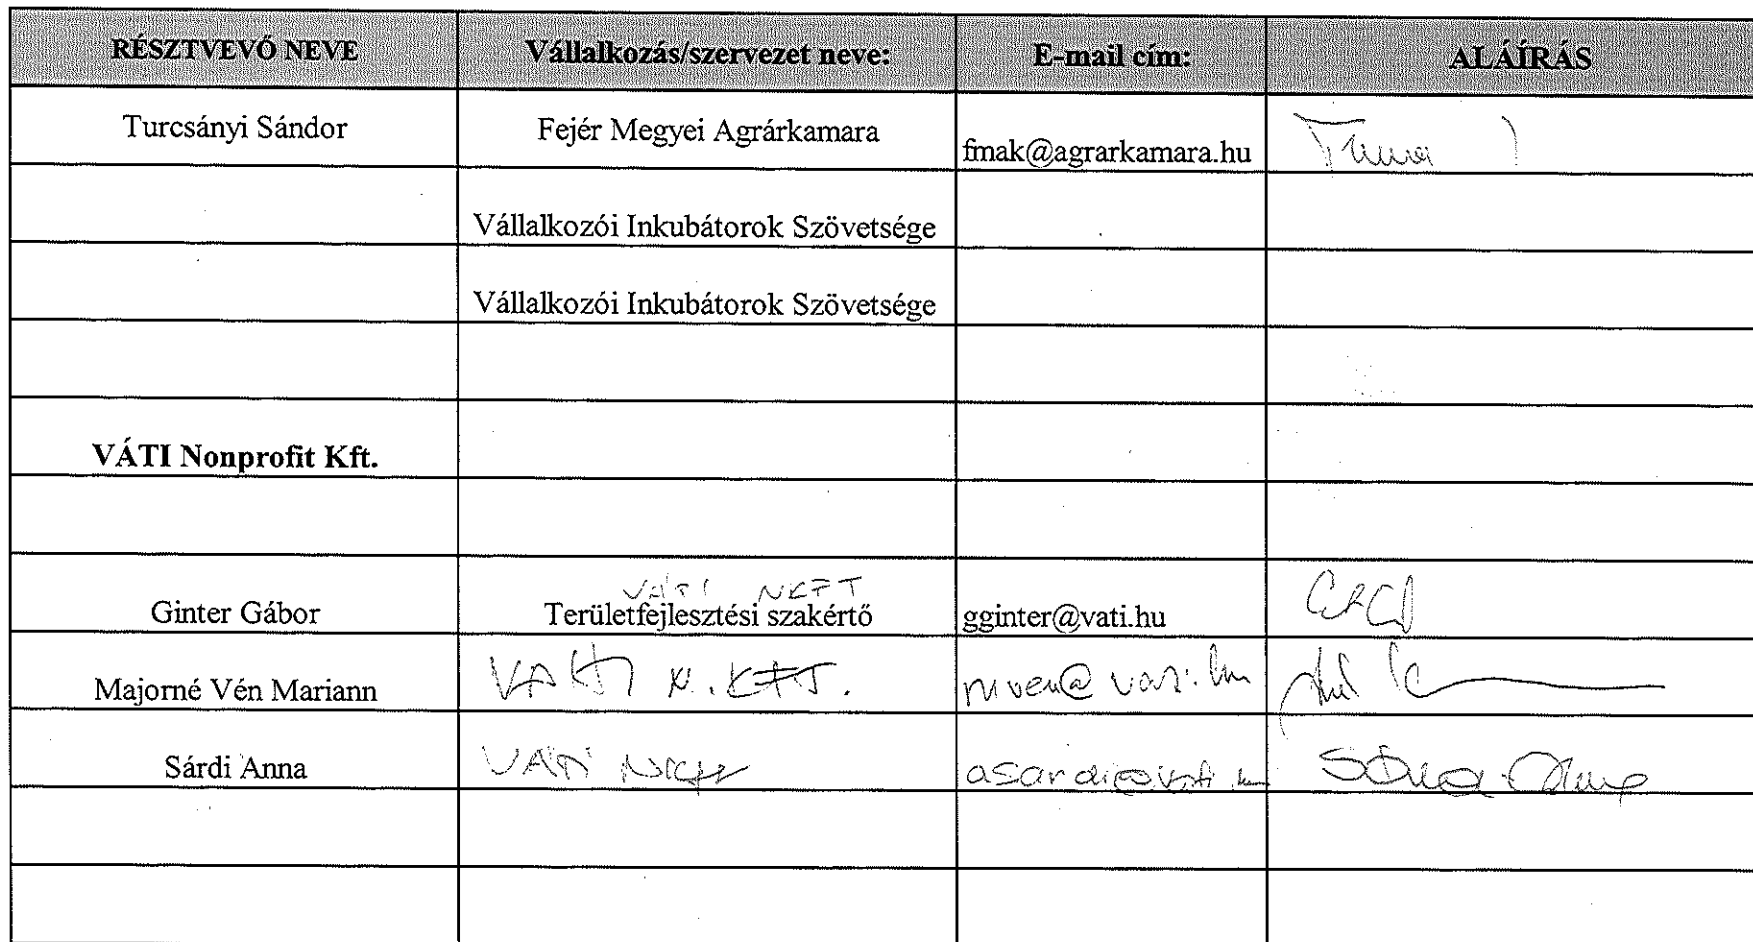 RÉSZTVEVŐ NEVE Vállalkozás/szervezet neve: E-mail cím: ALÁÍRÁS
Turcsányi Sándor Fejér Megyei Agrárkamara fmak@agrarkamara.hu
Vállalkozói Inkubátorok Szövetsége
Vállalkozói Inkubátorok Szövetsége
VÁTI Nonprofit Kft.
VÁTI NKFT
Ginter Gábor Területfejlesztési szakértő gginter@vati.hu
Majorné Vén Mariann VÁTI N.KFT. mven@vati.hu
Sárdi Anna VÁTI NKft asardi@vati.hu